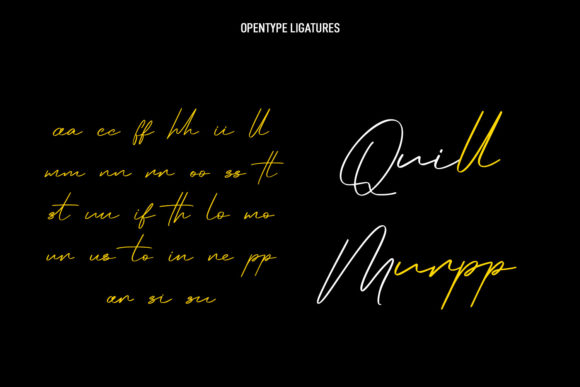 OPENTYPE LIGATURES
aa cc ff hh ii ll
mm nn rr oo ss tt
st uu if th lo mo
ur us to in re pp
ar si su
Quill
Murpp